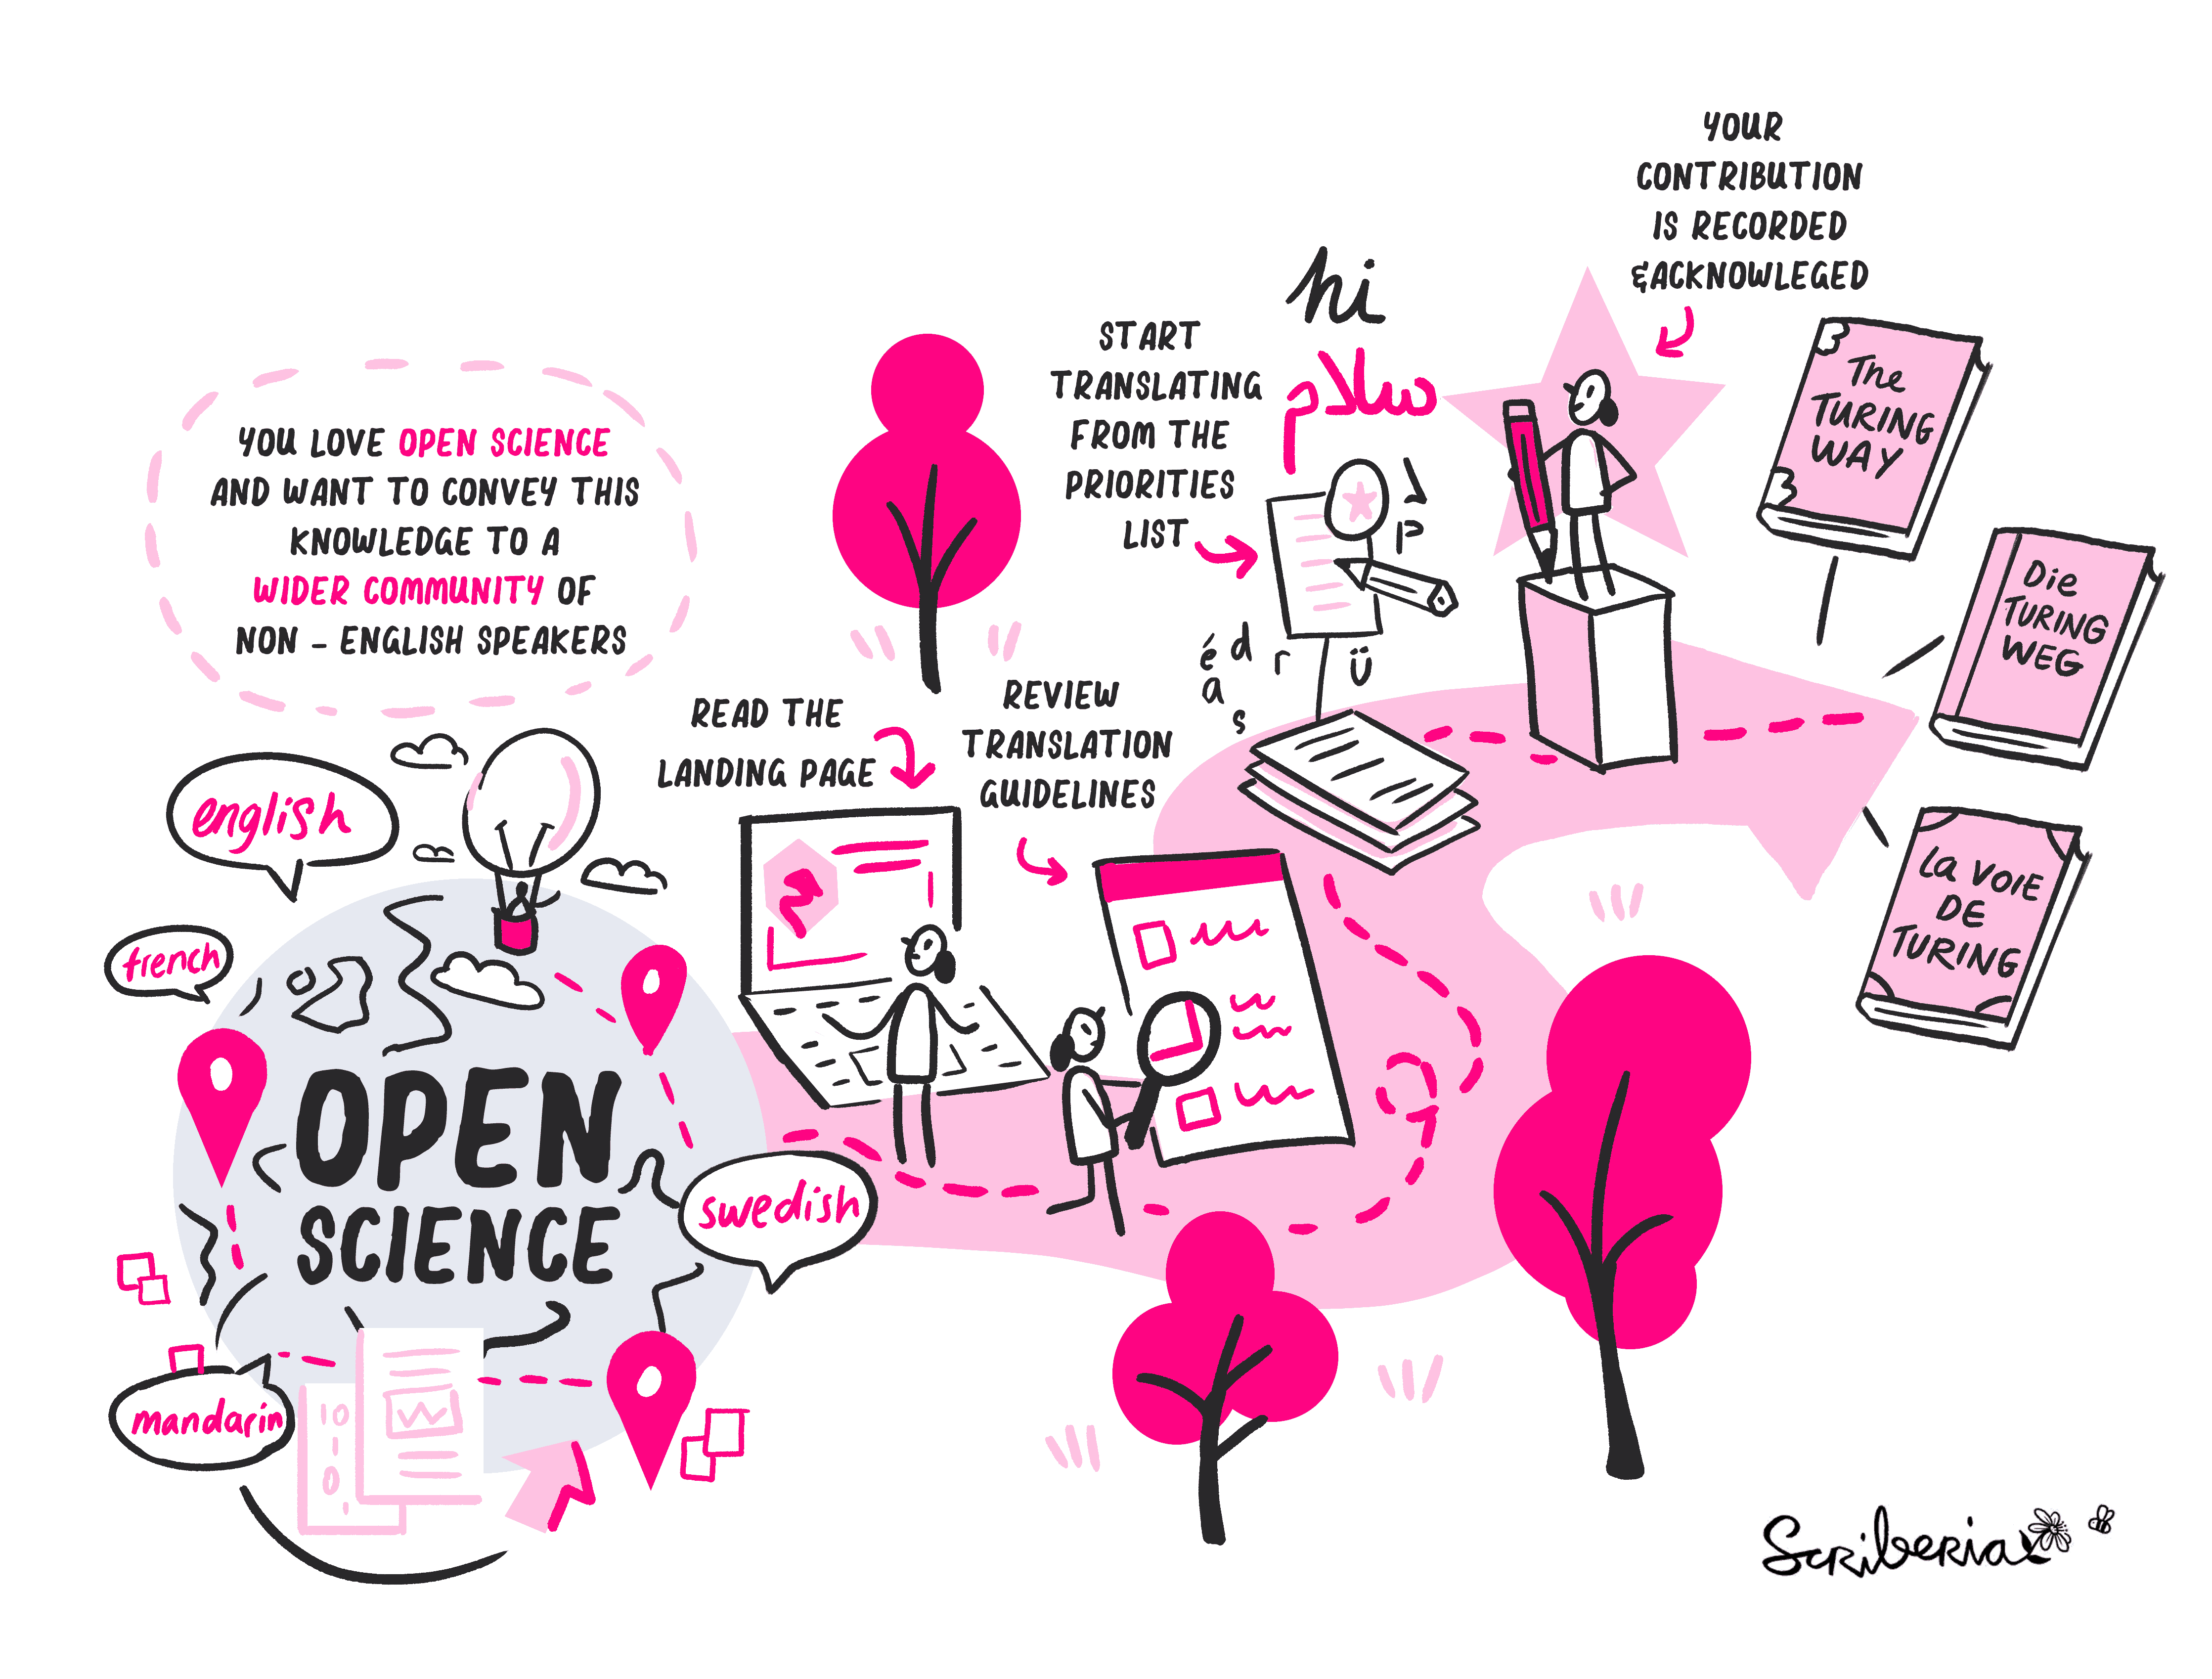 YOU LOVE OPEN SCIENCE
AND WANT TO CONVEY THIS
KNOWLEDGE TO A
WIDER COMMUNITY OF
NON - ENGLISH SPEAKERS
english
french
OPEN
SCIENCE
swedish
mandarin
10
1
0
READ THE
LANDING PAGE
REVIEW
TRANSLATION
GUIDELINES
START
TRANSLATING
FROM THE
PRIORITIES
LIST
hi
سلام
é d r ü
a
s
YOUR
CONTRIBUTION
IS RECORDED
&ACKNOWLEGED
The
TURING
WAY
Die
TURING
WEG
La VOIE
DE
TURING
Scriberia